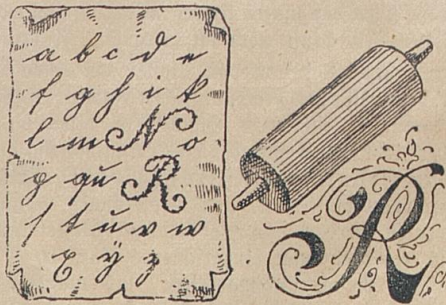 a b c d e
f g h i k
l m N o
p qu R
ſ t u v w
x ÿ z
R